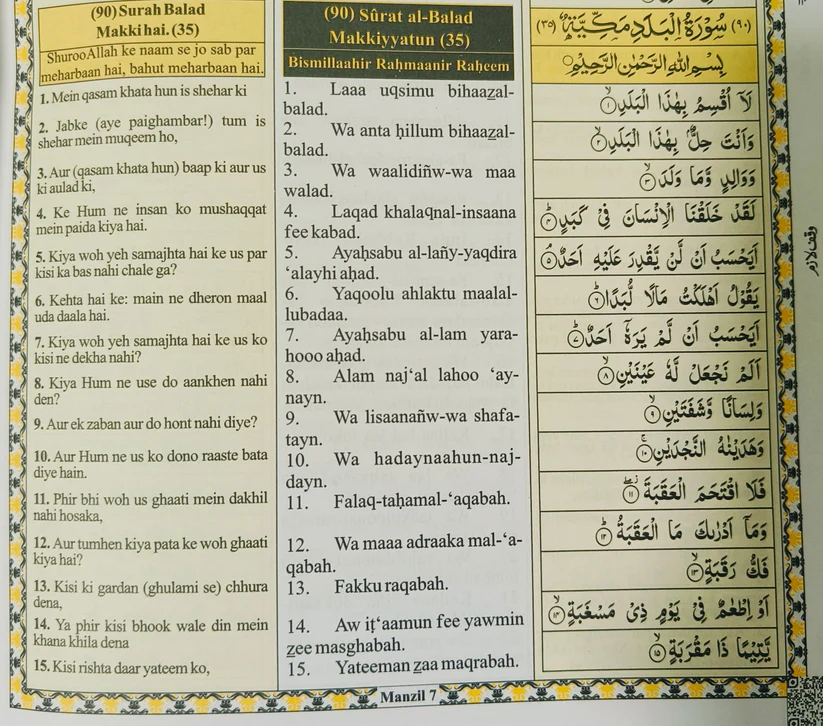 (90) Surah Balad
Makki hai. (35)
Shuroo Allah ke naam se jo sab par
meharbaan hai, bahut meharbaan hai.
1. Mein qasam khata hun is shehar ki
2. Jabke (aye paighambar!) tum is
shehar mein muqeem ho,
3. Aur (qasam khata hun) baap ki aur us
ki aulad ki,
4. Ke Hum ne insan ko mushaqqat
mein paida kiya hai.
5. Kiya woh yeh samajhta hai ke us par
kisi ka bas nahi chale ga?
6. Kehta hai ke: main ne dheron maal
uda daala hai.
7. Kiya woh yeh samajhta hai ke us ko
kisi ne dekha nahi?
8. Kiya Hum ne use do aankhen nahi
den?
9. Aur ek zaban aur do hont nahi diye?
10. Aur Hum ne us ko dono raaste bata
diye hain.
11. Phir bhi woh us ghaati mein dakhil
nahi hosaka,
12. Aur tumhen kiya pata ke woh ghaati
kiya hai?
13. Kisi ki gardan (ghulami se) chhura
dena,
14. Ya phir kisi bhook wale din mein
khana khila dena
15. Kisi rishta daar yateem ko,
(90) Sûrat al-Balad
Makkiyyatun (35)
Bismillaahir Raḥmaanir Raḥeem
1. Laaa uqsimu bihaazal-
balad.
2. Wa anta ḥillum bihaazal-
balad.
3. Wa waalidiñw-wa maa
walad.
4. Laqad khalaqnal-insaana
fee kabad.
5. Ayaḥsabu al-lañy-yaqdira
‘alayhi aḥad.
6. Yaqoolu ahlaktu maalal-
lubadaa.
7. Ayaḥsabu al-lam yara-
hooo aḥad.
8. Alam naj‘al lahoo ‘ay-
nayn.
9. Wa lisaanañw-wa shafa-
tayn.
10. Wa hadaynaahun-naj-
dayn.
11. Falaq-taḥamal-‘aqabah.
12. Wa maaa adraaka mal-‘a-
qabah.
13. Fakku raqabah.
14. Aw iṭ‘aamun fee yawmin
zee masghabah.
15. Yateeman zaa maqrabah.
(٩٠) سُوْرَةُ الْبَلَدِ مَكِّيَّةٌ (٣٥)
بِسْمِ اللهِ الرَّحْمٰنِ الرَّحِيْمِ
لَآ اُقْسِمُ بِهٰذَا الْبَلَدِۙ ١
وَاَنْتَ حِلٌّۢ بِهٰذَا الْبَلَدِۙ ٢
وَوَالِدٍ وَّمَا وَلَدَۙ ٣
لَقَدْ خَلَقْنَا الْاِنْسَانَ فِيْ كَبَدٍؕ ٤
اَيَحْسَبُ اَنْ لَّنْ يَّقْدِرَ عَلَيْهِ اَحَدٌۘ ٥
يَقُوْلُ اَهْلَكْتُ مَالًا لُّبَدًاؕ ٦
اَيَحْسَبُ اَنْ لَّمْ يَرَهٗۤ اَحَدٌؕ ٧
اَلَمْ نَجْعَلْ لَّهٗ عَيْنَيْنِۙ ٨
وَلِسَانًا وَّشَفَتَيْنِۙ ٩
وَهَدَيْنٰهُ النَّجْدَيْنِۚ ١٠
فَلَا اقْتَحَمَ الْعَقَبَةَ ١١
وَمَآ اَدْرٰىكَ مَا الْعَقَبَةُؕ ١٢
فَكُّ رَقَبَةٍۙ ١٣
اَوْ اِطْعٰمٌ فِيْ يَوْمٍ ذِيْ مَسْغَبَةٍۙ ١٤
يَّتِيْمًا ذَا مَقْرَبَةٍۙ ١٥
وقف لازم
Manzil 7